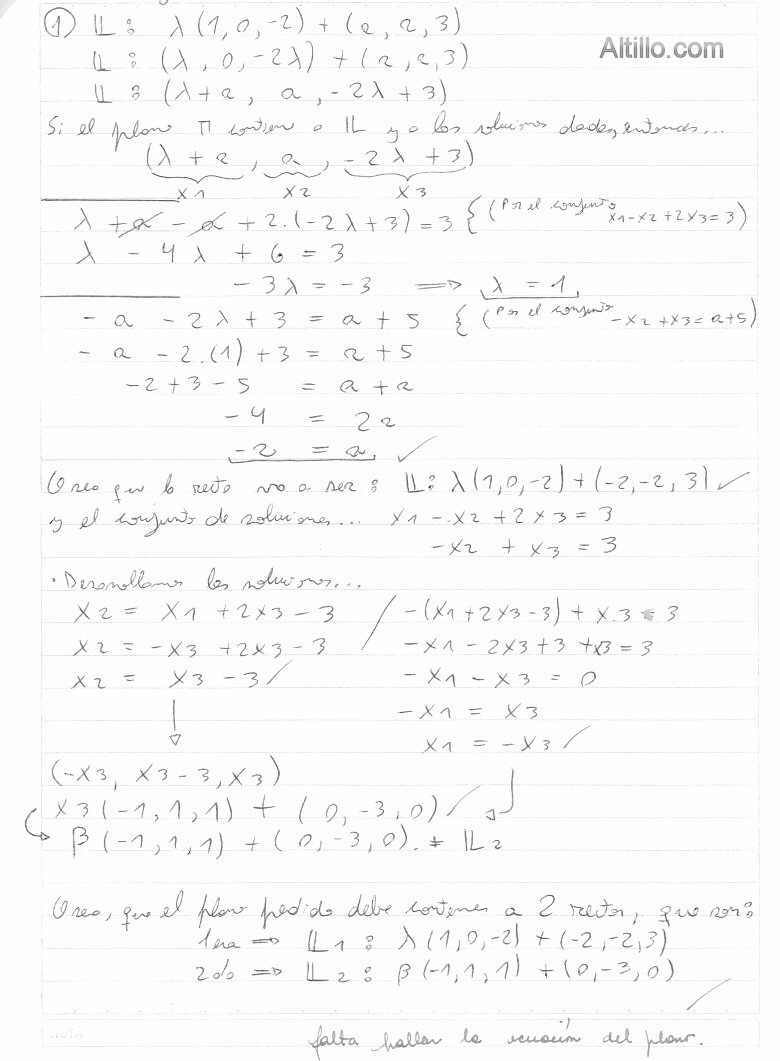 ① 𝕃 : λ(1,0,-2) + (a, a, 3)
Altillo.com
𝕃 : (λ, 0, -2λ) + (a, a, 3)
𝕃 : (λ+a, a, -2λ+3)
Si el plano π contiene a 𝕃 y a las soluciones dadas, entonces...
(λ + a, a, -2λ + 3)
x1 x2 x3
λ + a - a + 2.(-2λ+3) = 3 { (Por el conjunto x1-x2+2x3=3)
λ - 4λ + 6 = 3
-3λ = -3 ⟹ λ = 1
-a - 2λ + 3 = a + 5 { (Por el conjunto -x2+x3=a+5)
-a - 2.(1) + 3 = a + 5
-2 + 3 - 5 = a + a
-4 = 2a
-2 = a ✓
O sea que la recta va a ser : 𝕃: λ(1,0,-2) + (-2,-2,3) ✓
y el conjunto de soluciones... x1 - x2 + 2x3 = 3
-x2 + x3 = 3
· Desarrollamos las soluciones...
x2 = x1 + 2x3 - 3 / -(x1+2x3-3) + x3 = 3
x2 = -x3 + 2x3 - 3 -x1 - 2x3 + 3 + x3 = 3
x2 = x3 - 3 / -x1 - x3 = 0
-x1 = x3
x1 = -x3 /
(-x3, x3-3, x3)
x3(-1,1,1) + (0,-3,0) /
β(-1,1,1) + (0,-3,0). = 𝕃2
O sea, que el plano pedido debe contener a 2 rectas, que son:
1era ⟹ 𝕃1 : λ(1,0,-2) + (-2,-2,3)
2da ⟹ 𝕃2 : β(-1,1,1) + (0,-3,0)
falta hallar la ecuación del plano.